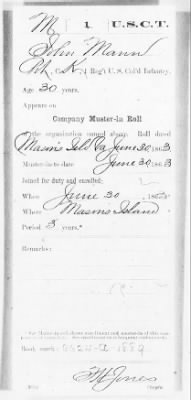 M 1 U.S.C.T.
John Mann
Pvt., Co. K, 1 Reg't U. S. Col'd Infantry.
Age 30 years.
Appears on
Company Muster-in Roll
of the organization named above. Roll dated
Mason's Isld Va June 30, 1863
Muster-in to date June 30, 1863
Joined for duty and enrolled:
When June 30, 1863
Where Masons Island
Period 3 years.*
Remarks:
Book mark: 0325-A-1889